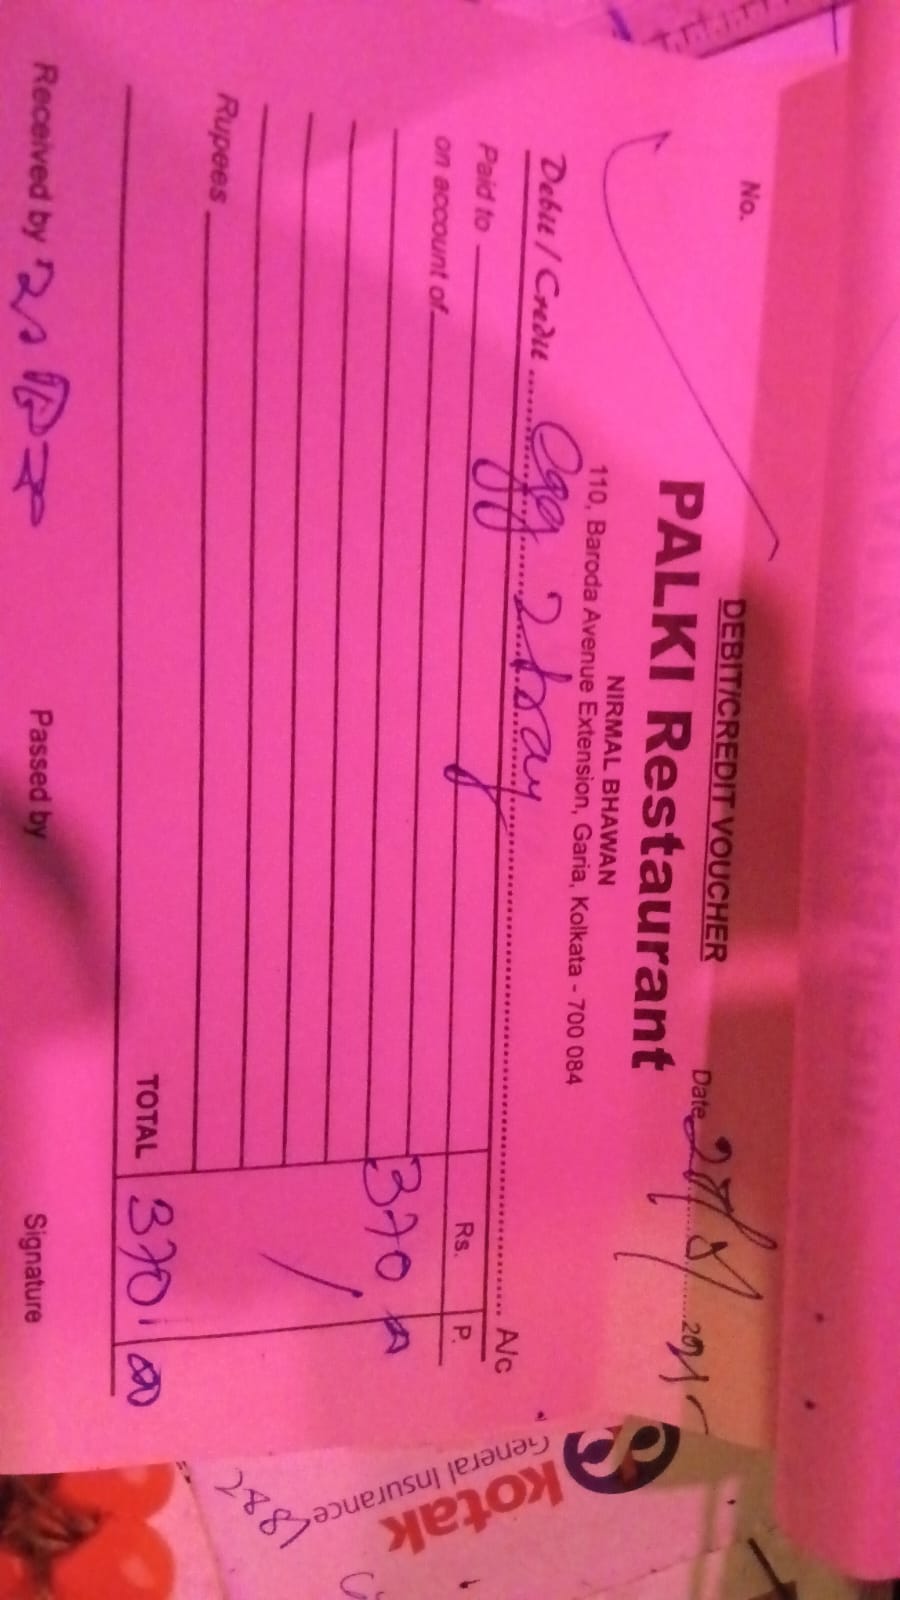 DEBIT/CREDIT VOUCHER
No.
Date
PALKI Restaurant
NIRMAL BHAWAN
110, Baroda Avenue Extension, Garia, Kolkata - 700 084
Debit / Credit Egg 2 tray A/c
Paid to Rs. P.
on account of
370 00
Rupees
TOTAL 370 00
Received by Passed by Signature
kotak
General Insurance